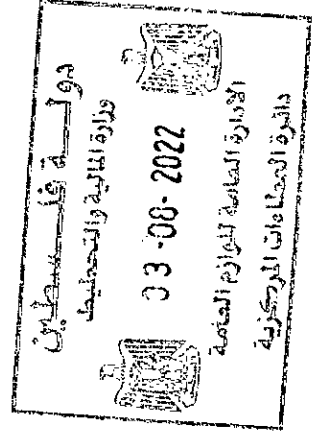 دولة فلسطين
وزارة المالية والتخطيط
03-08-2022
الادارة العامة للوازم العامة
دائرة العطاءات المركزية